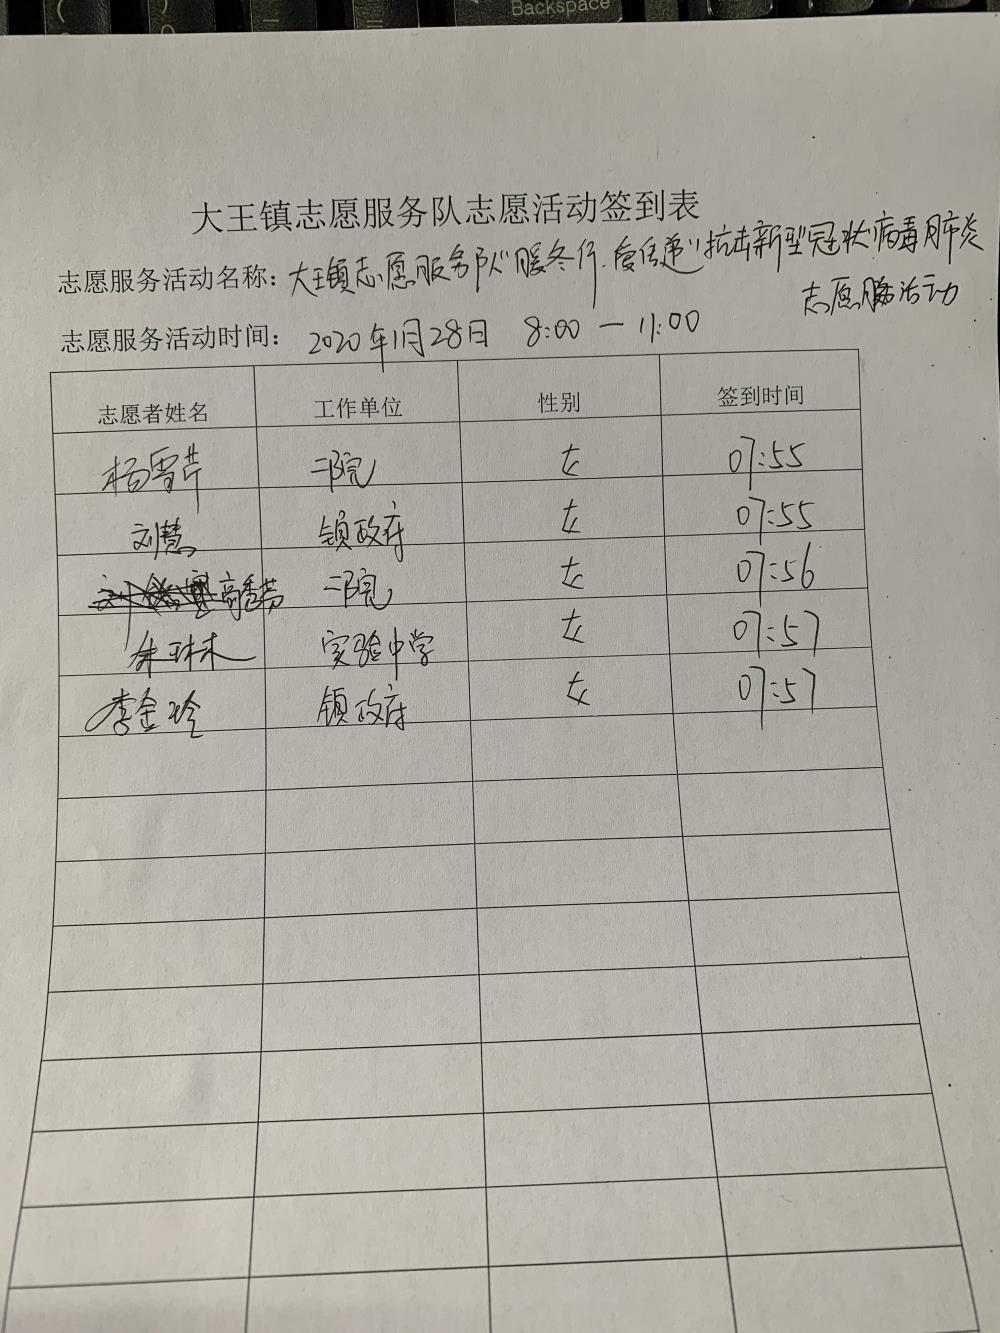 Backspace
大王镇志愿服务队志愿活动签到表
志愿服务活动名称：大王镇志愿服务队"暖冬行.爱传递"抗击新型冠状病毒肺炎
志愿服务活动
志愿服务活动时间： 2020年1月28日 8:00—11:00
志愿者姓名 工作单位 性别 签到时间
杨雪芹 二院 女 07:55
刘慧 镇政府 女 07:55
高秀芳 二院 女 07:56
朱琳 实验中学 女 07:57
李金玲 镇政府 女 07:57